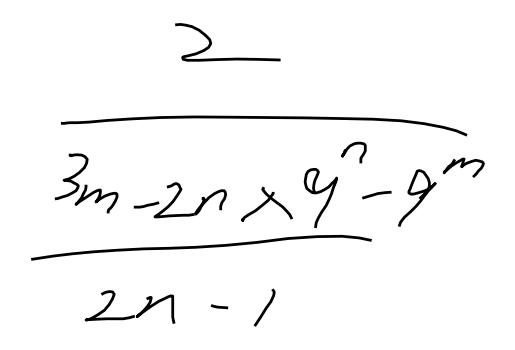 2
3m-2n×9^n-9^m
2n-1